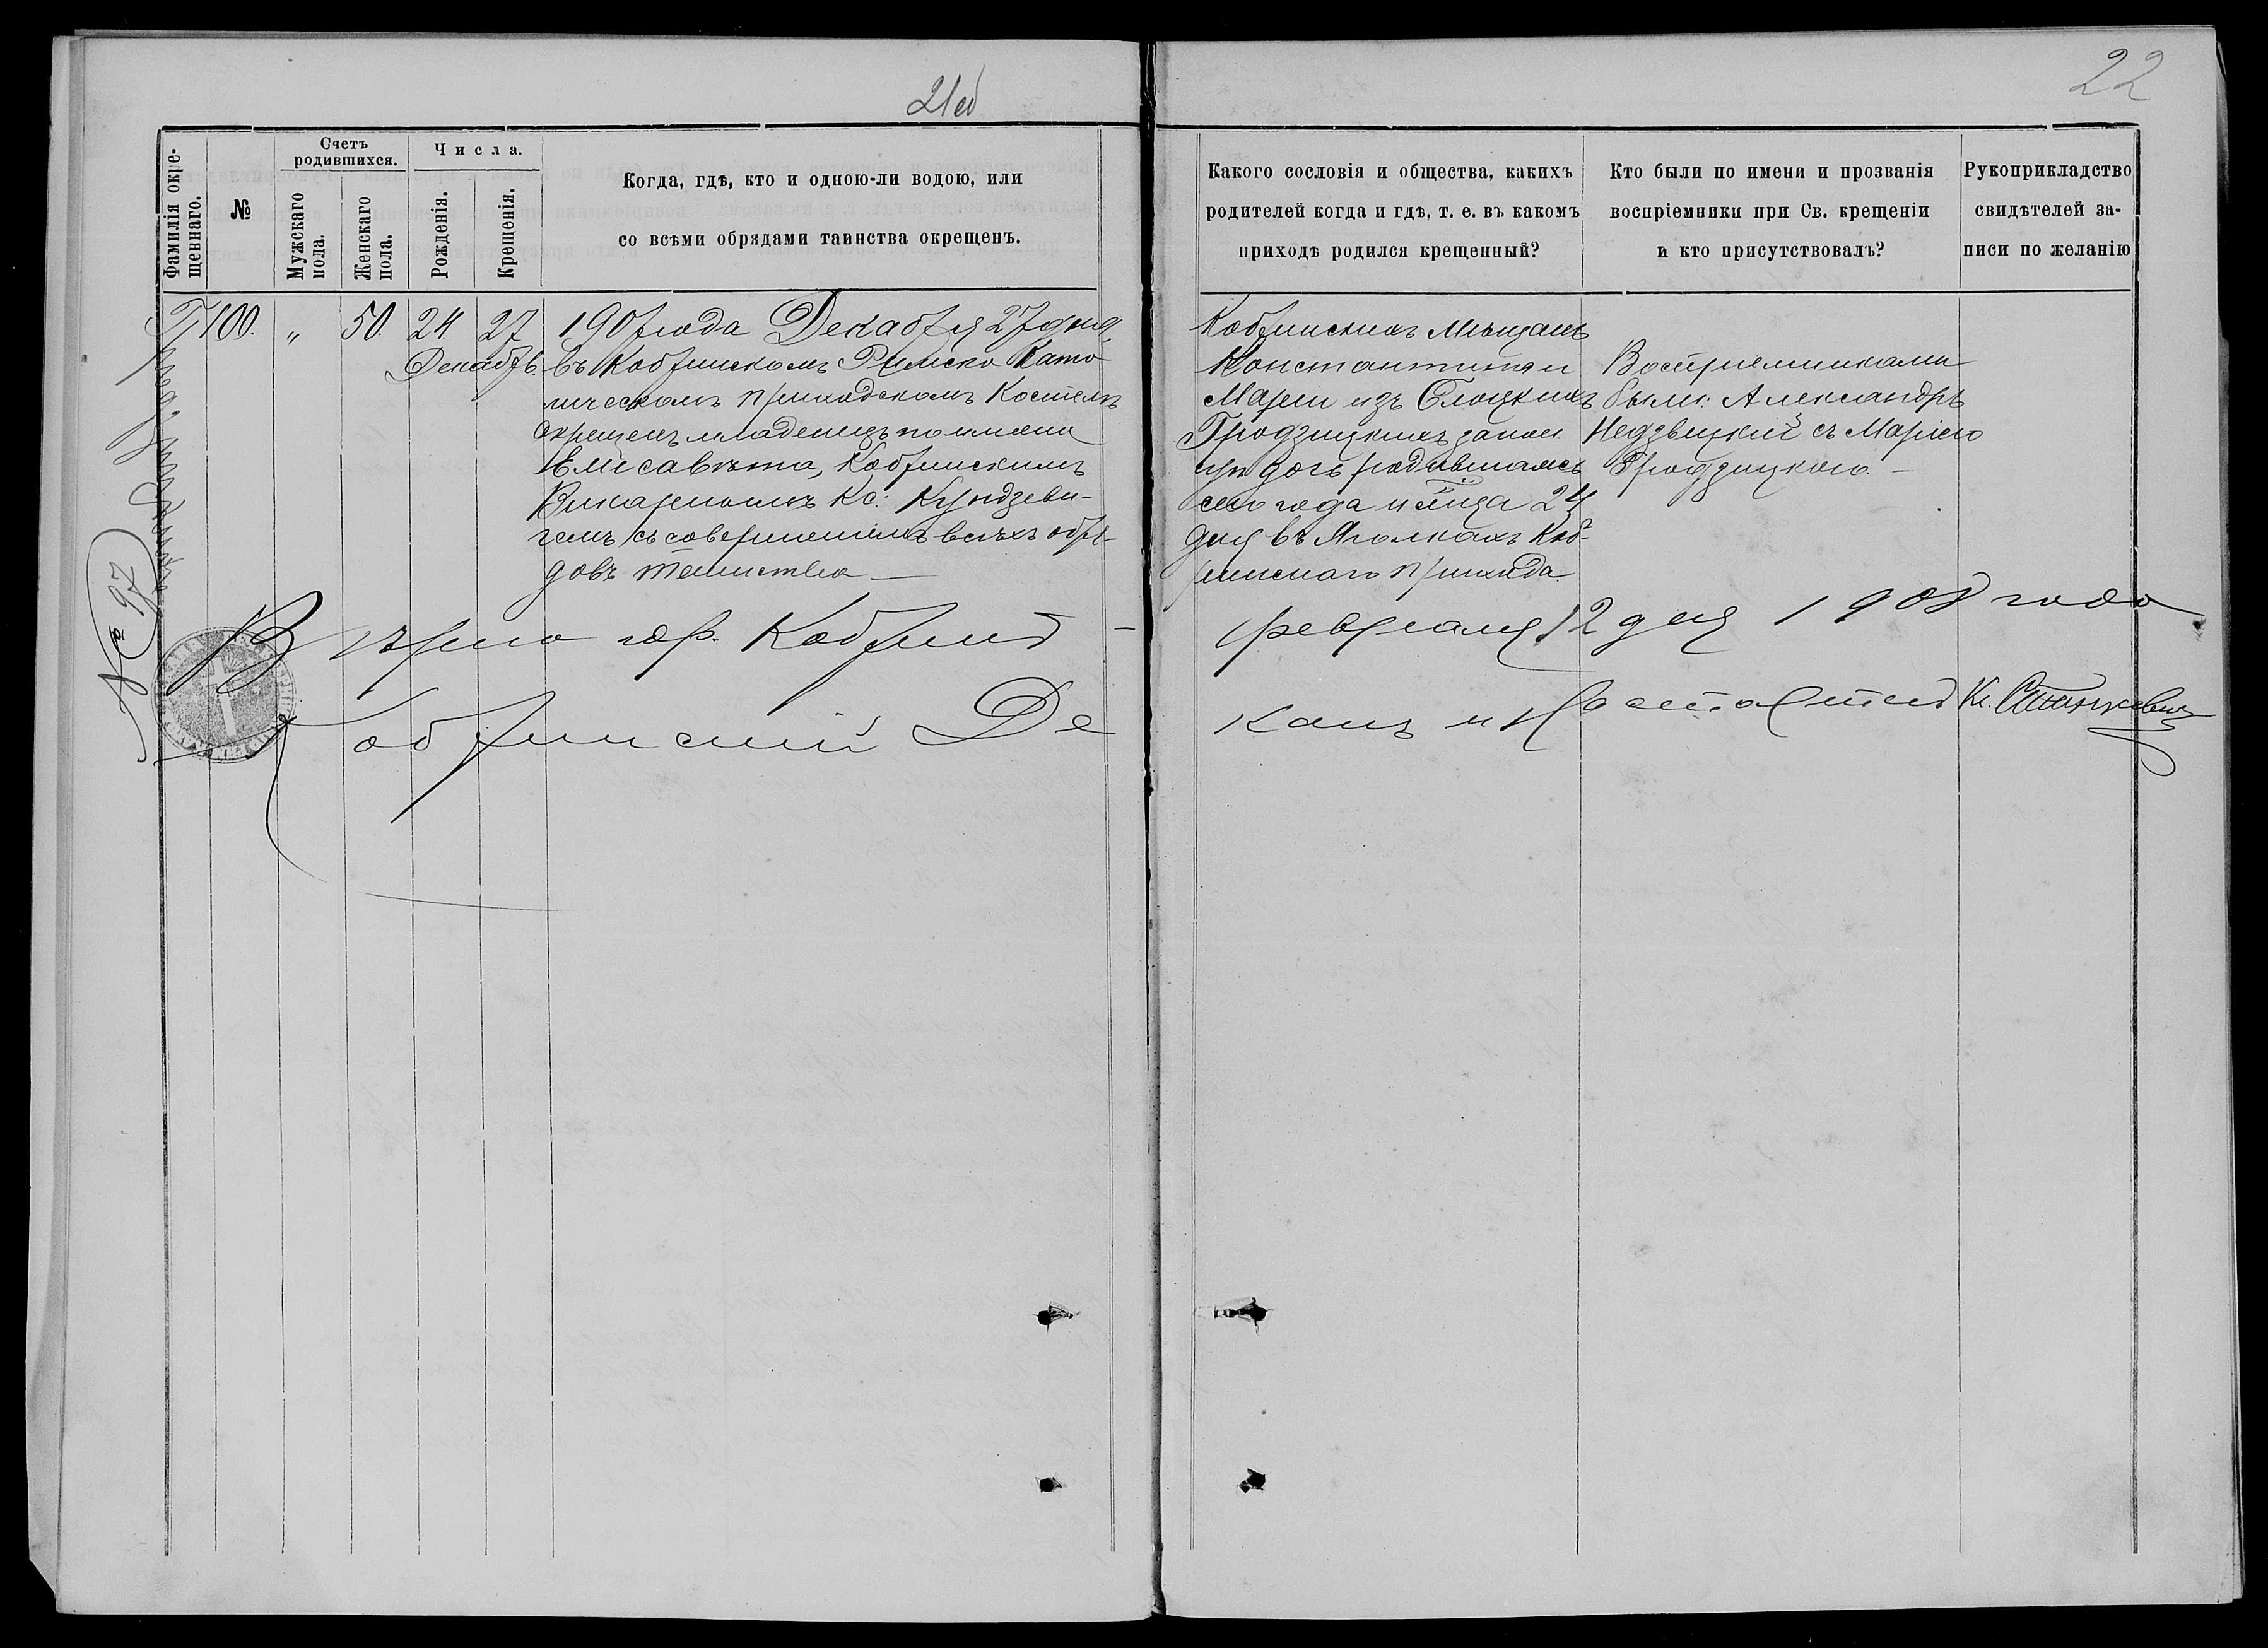 21об
22
Фамилія окре-
щеннаго.
№
Счетъ
родившихся.
Мужскаго
пола.
Женскаго
пола.
Числа.
Рожденія.
Крещенія.
Когда, гдѣ, кто и одною-ли водою, или
со всѣми обрядами таинства окрещенъ.
Какого сословія и общества, какихъ
родителей когда и гдѣ, т. е. въ какомъ
приходѣ родился крещенный?
Кто были по имени и прозванія
воспріемники при Св. крещеніи
и кто присутствовалъ?
Рукоприкладство
свидѣтелей за-
писи по желанію
100.
"
50.
24.
27
Декабрь
1907 года Декабря 27 дня,
въ Кобринскомъ Римско Като
лическомъ приходскомъ Костелѣ
окрещенъ младенецъ по имени
Елисавѣта, Кобринскимъ
Викарнымъ Кс: Кундзеви-
чемъ съ совершеніемъ всѣхъ обря-
довъ таинства —
Кобринскихъ мѣщанъ
Константина и
Маріи изъ
Гродзицкихъ закон.
дочь родившаяся
сего года и мѣсяца 24
дня въ Яголкахъ Коб-
ринскаго прихода
Воспріемниками
были: Александръ
Недзвецкій съ Маріею
Гродзицкою. —
№ 97
Вѣрно гор. Кобринъ —
февраля 12 дня 1908 года
Кобринскій Де
канъ и Настоятель Кс. Станкевичъ